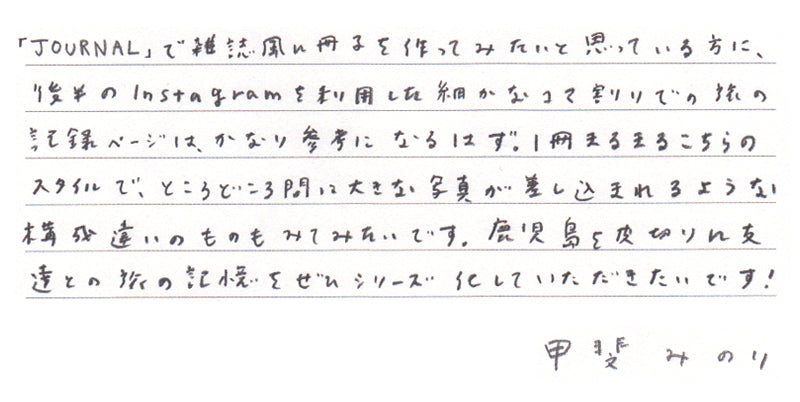 「JOURNAL」で雑誌風に冊子を作ってみたいと思っている方に、
後半のInstagramを利用した細かなコマ割りでの旅の
記録ページは、かなり参考になるはず。1冊まるまるこちらの
スタイルで、ところどころ間に大きな写真が差し込まれるような
構成違いのものもみてみたいです。鹿児島を皮切りに友
達との旅の記憶をぜひシリーズ化していただきたいです！
甲斐みのり